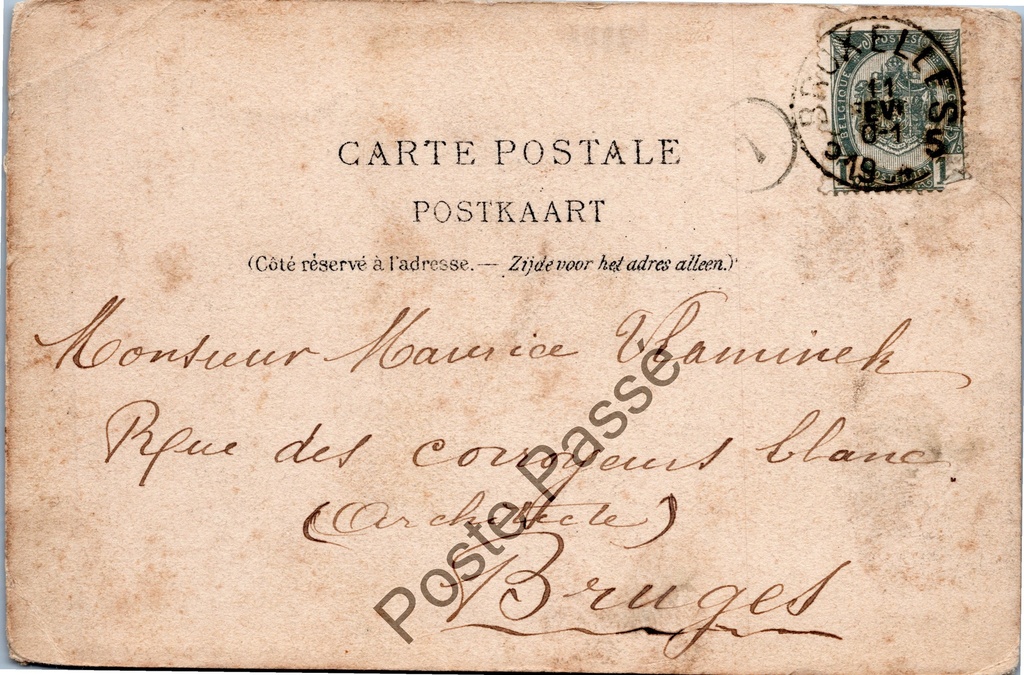 BRUXELLES 5
11
FEVR
0-1
19
POSTES
BELGIQUE
1
1
CARTE POSTALE
POSTKAART
(Côté réservé à l'adresse. — Zijde voor het adres alleen.)
Monsieur Maurice Vlaminck
Rue des corroyeurs blanc
(Architecte)
Bruges
Poste Passé